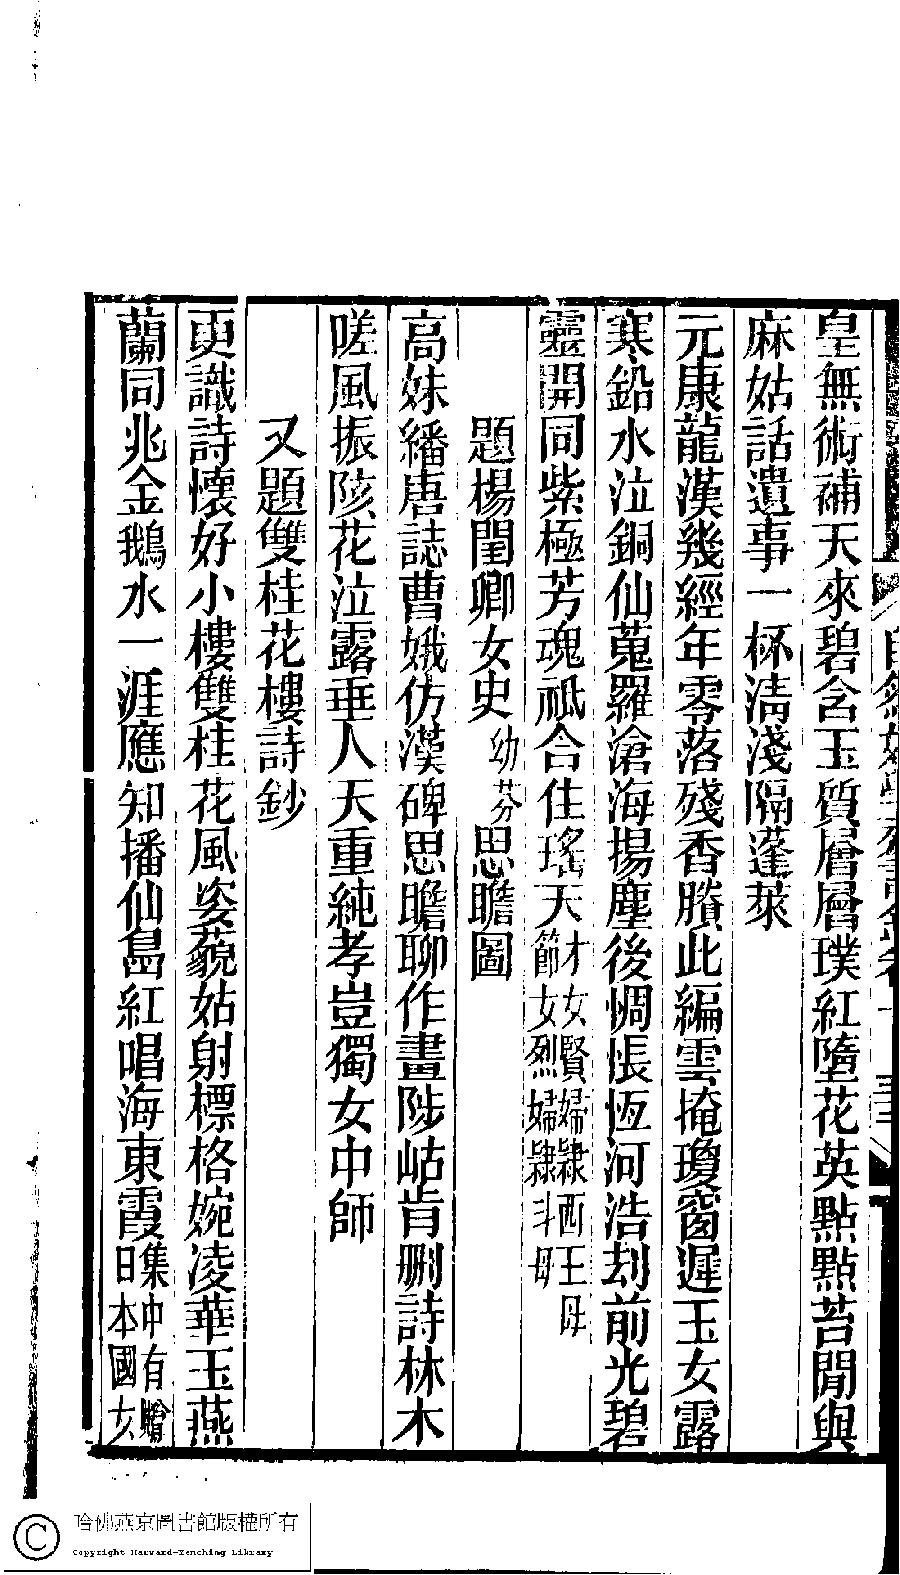 皇無術補天來碧含玉質層層璞紅墮花英點點苔閒與
麻姑話遺事一杯淸淺隔蓬萊
元康龍漢幾經年零落殘香賸此編雲掩瓊窗遲玉女露
寒鉛水泣銅仙蒐羅滄海揚塵後惆悵恆河浩刦前光碧
靈開同紫極芳魂祗合住瑤天才女賢婦隸西王母
節女烈婦隸斗母
題楊閨卿女史幼芬思瞻圖
高妹繙唐誌曹娥仿漢碑思瞻聊作畫陟岵肯删詩林木
嗟風振陔花泣露垂人天重純孝豈獨女中師
又題雙桂花樓詩鈔
更識詩懷好小樓雙桂花風姿藐姑射標格婉凌華玉燕
蘭同兆金鵝水一涯應知播仙島紅唱海東霞集中有贈
日本國女
哈佛燕京圖書館版權所有
Copyright Harvard-Yenching Library